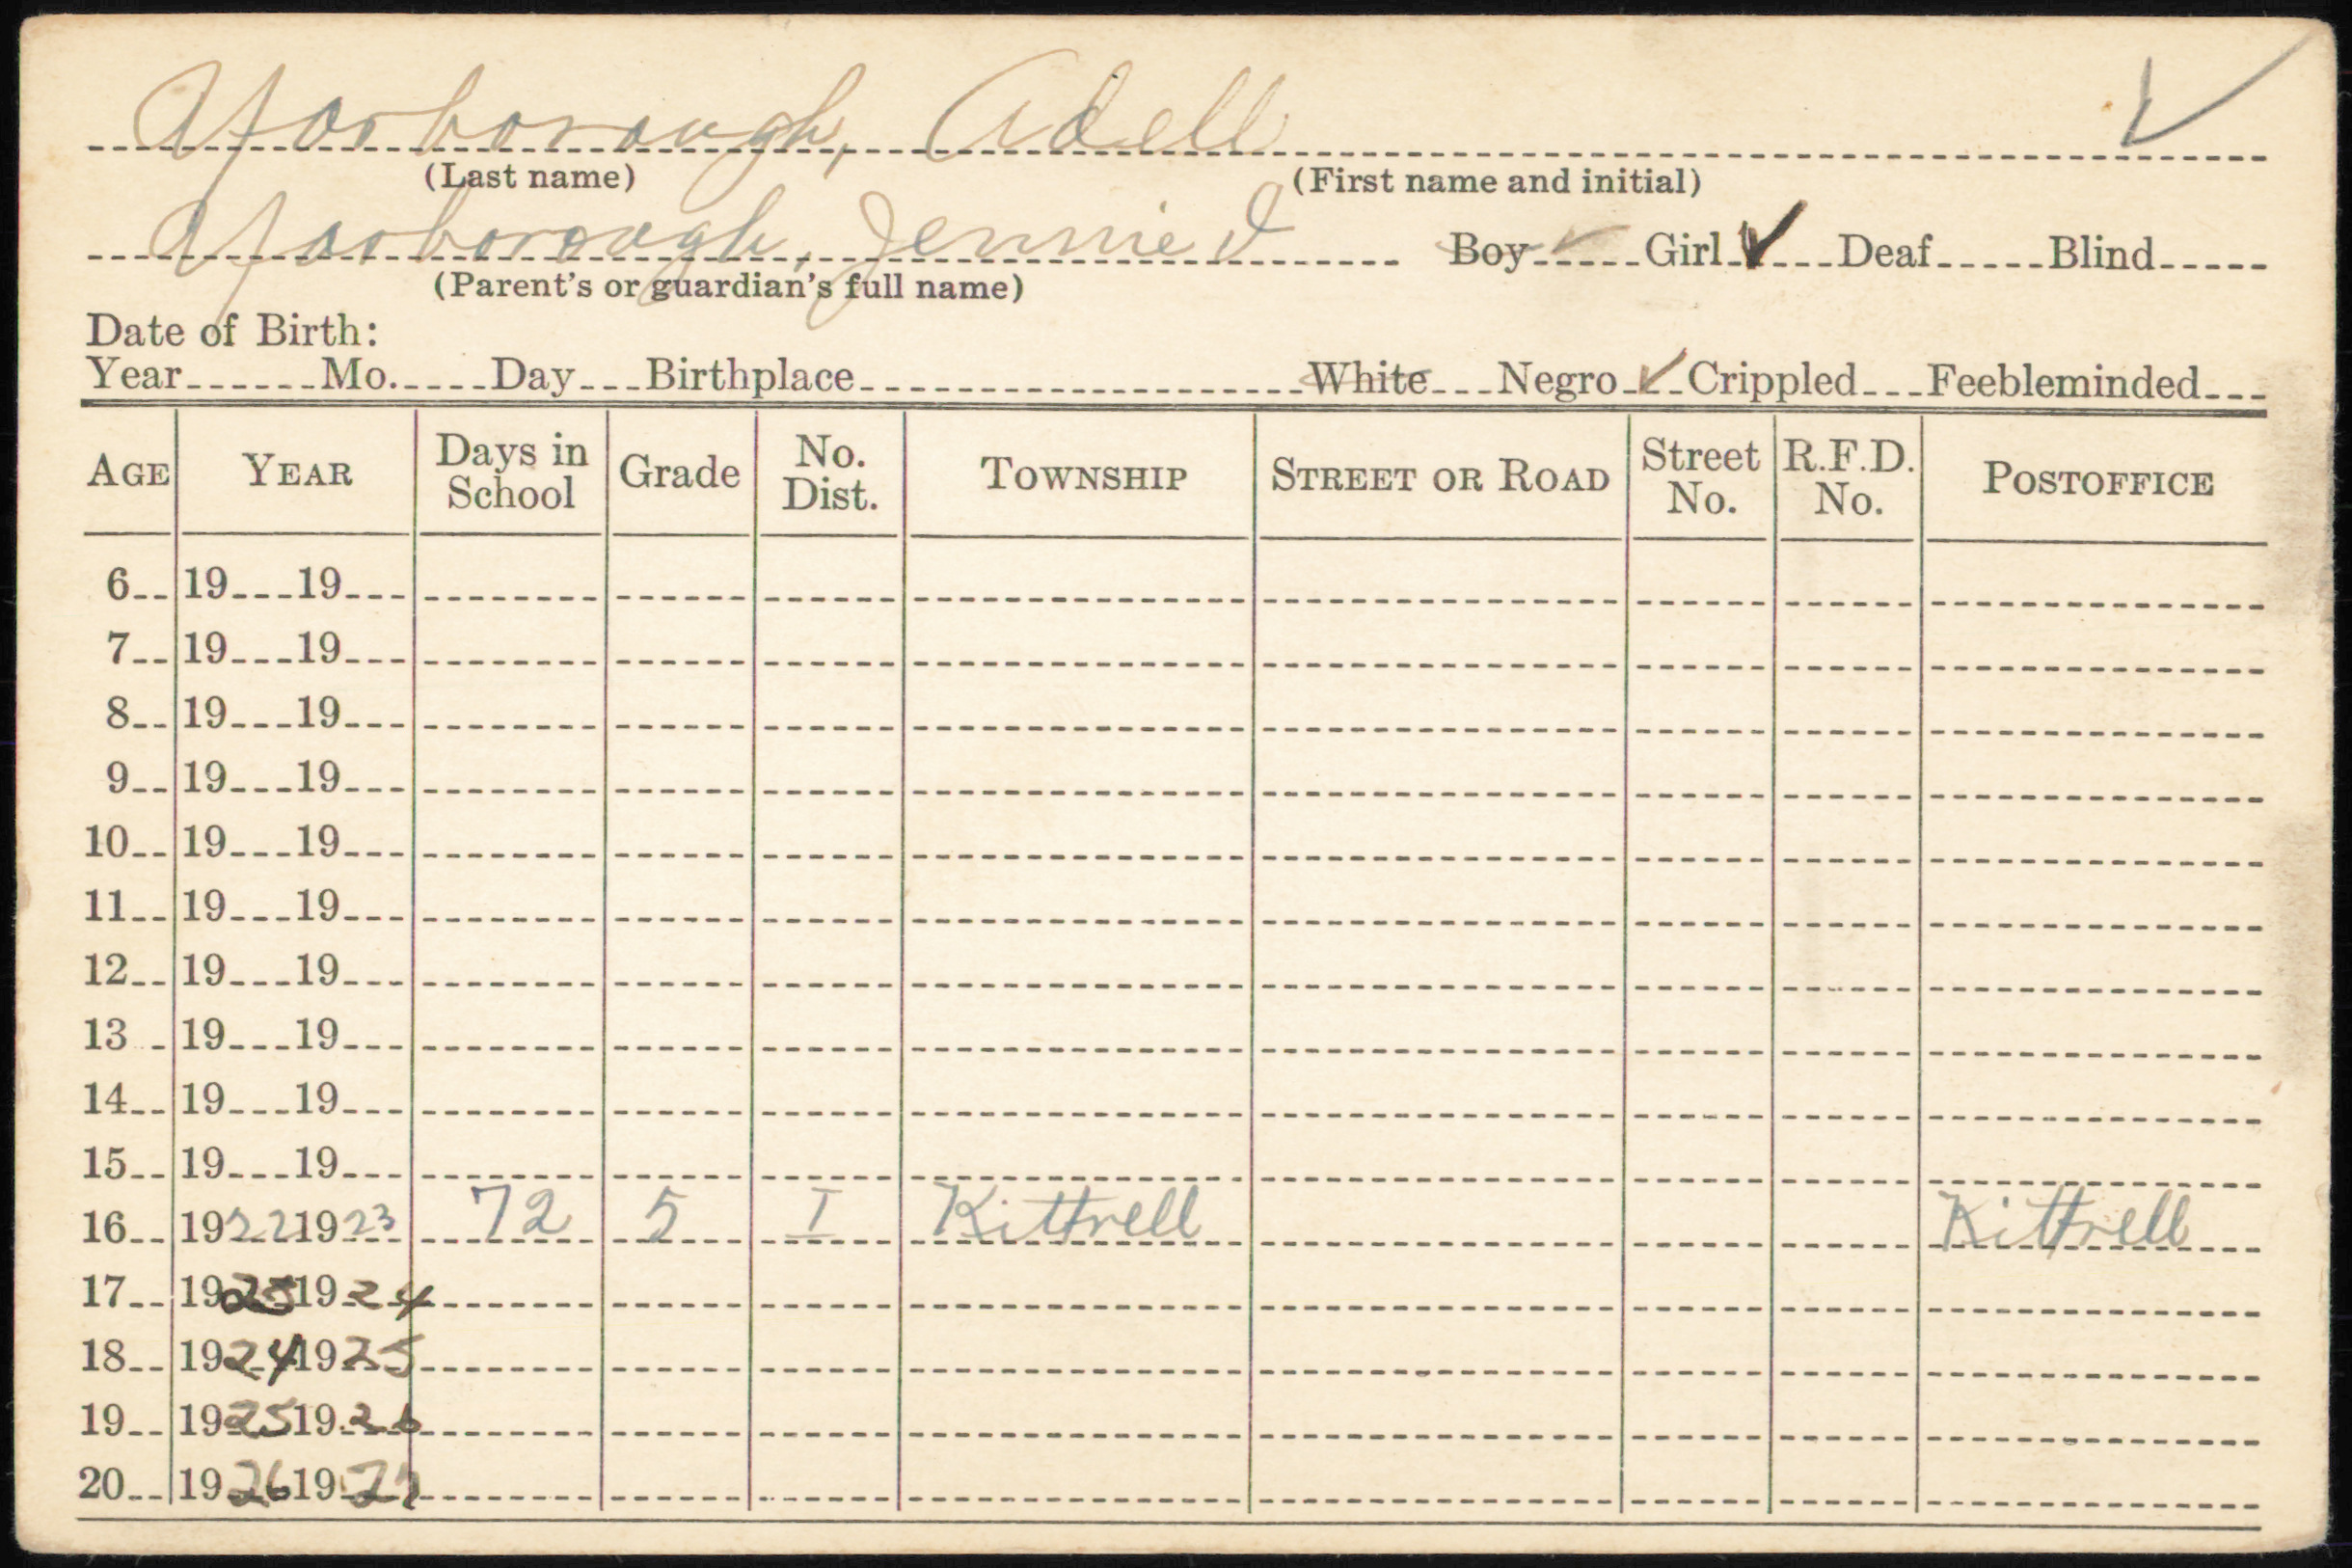 Yarborough, Adell
(Last name) (First name and initial)
Yarborough, Jennie D Boy Girl ✓ Deaf Blind
(Parent's or guardian's full name)
Date of Birth:
Year Mo. Day Birthplace White Negro ✓ Crippled Feebleminded
AGE YEAR Days in School Grade No. Dist. TOWNSHIP STREET OR ROAD Street No. R.F.D. No. POSTOFFICE
6 19 19
7 19 19
8 19 19
9 19 19
10 19 19
11 19 19
12 19 19
13 19 19
14 19 19
15 19 19
16 1922 1923 72 5 I Kittrell Kittrell
17 1923 1924
18 1924 1925
19 1925 1926
20 1926 1927